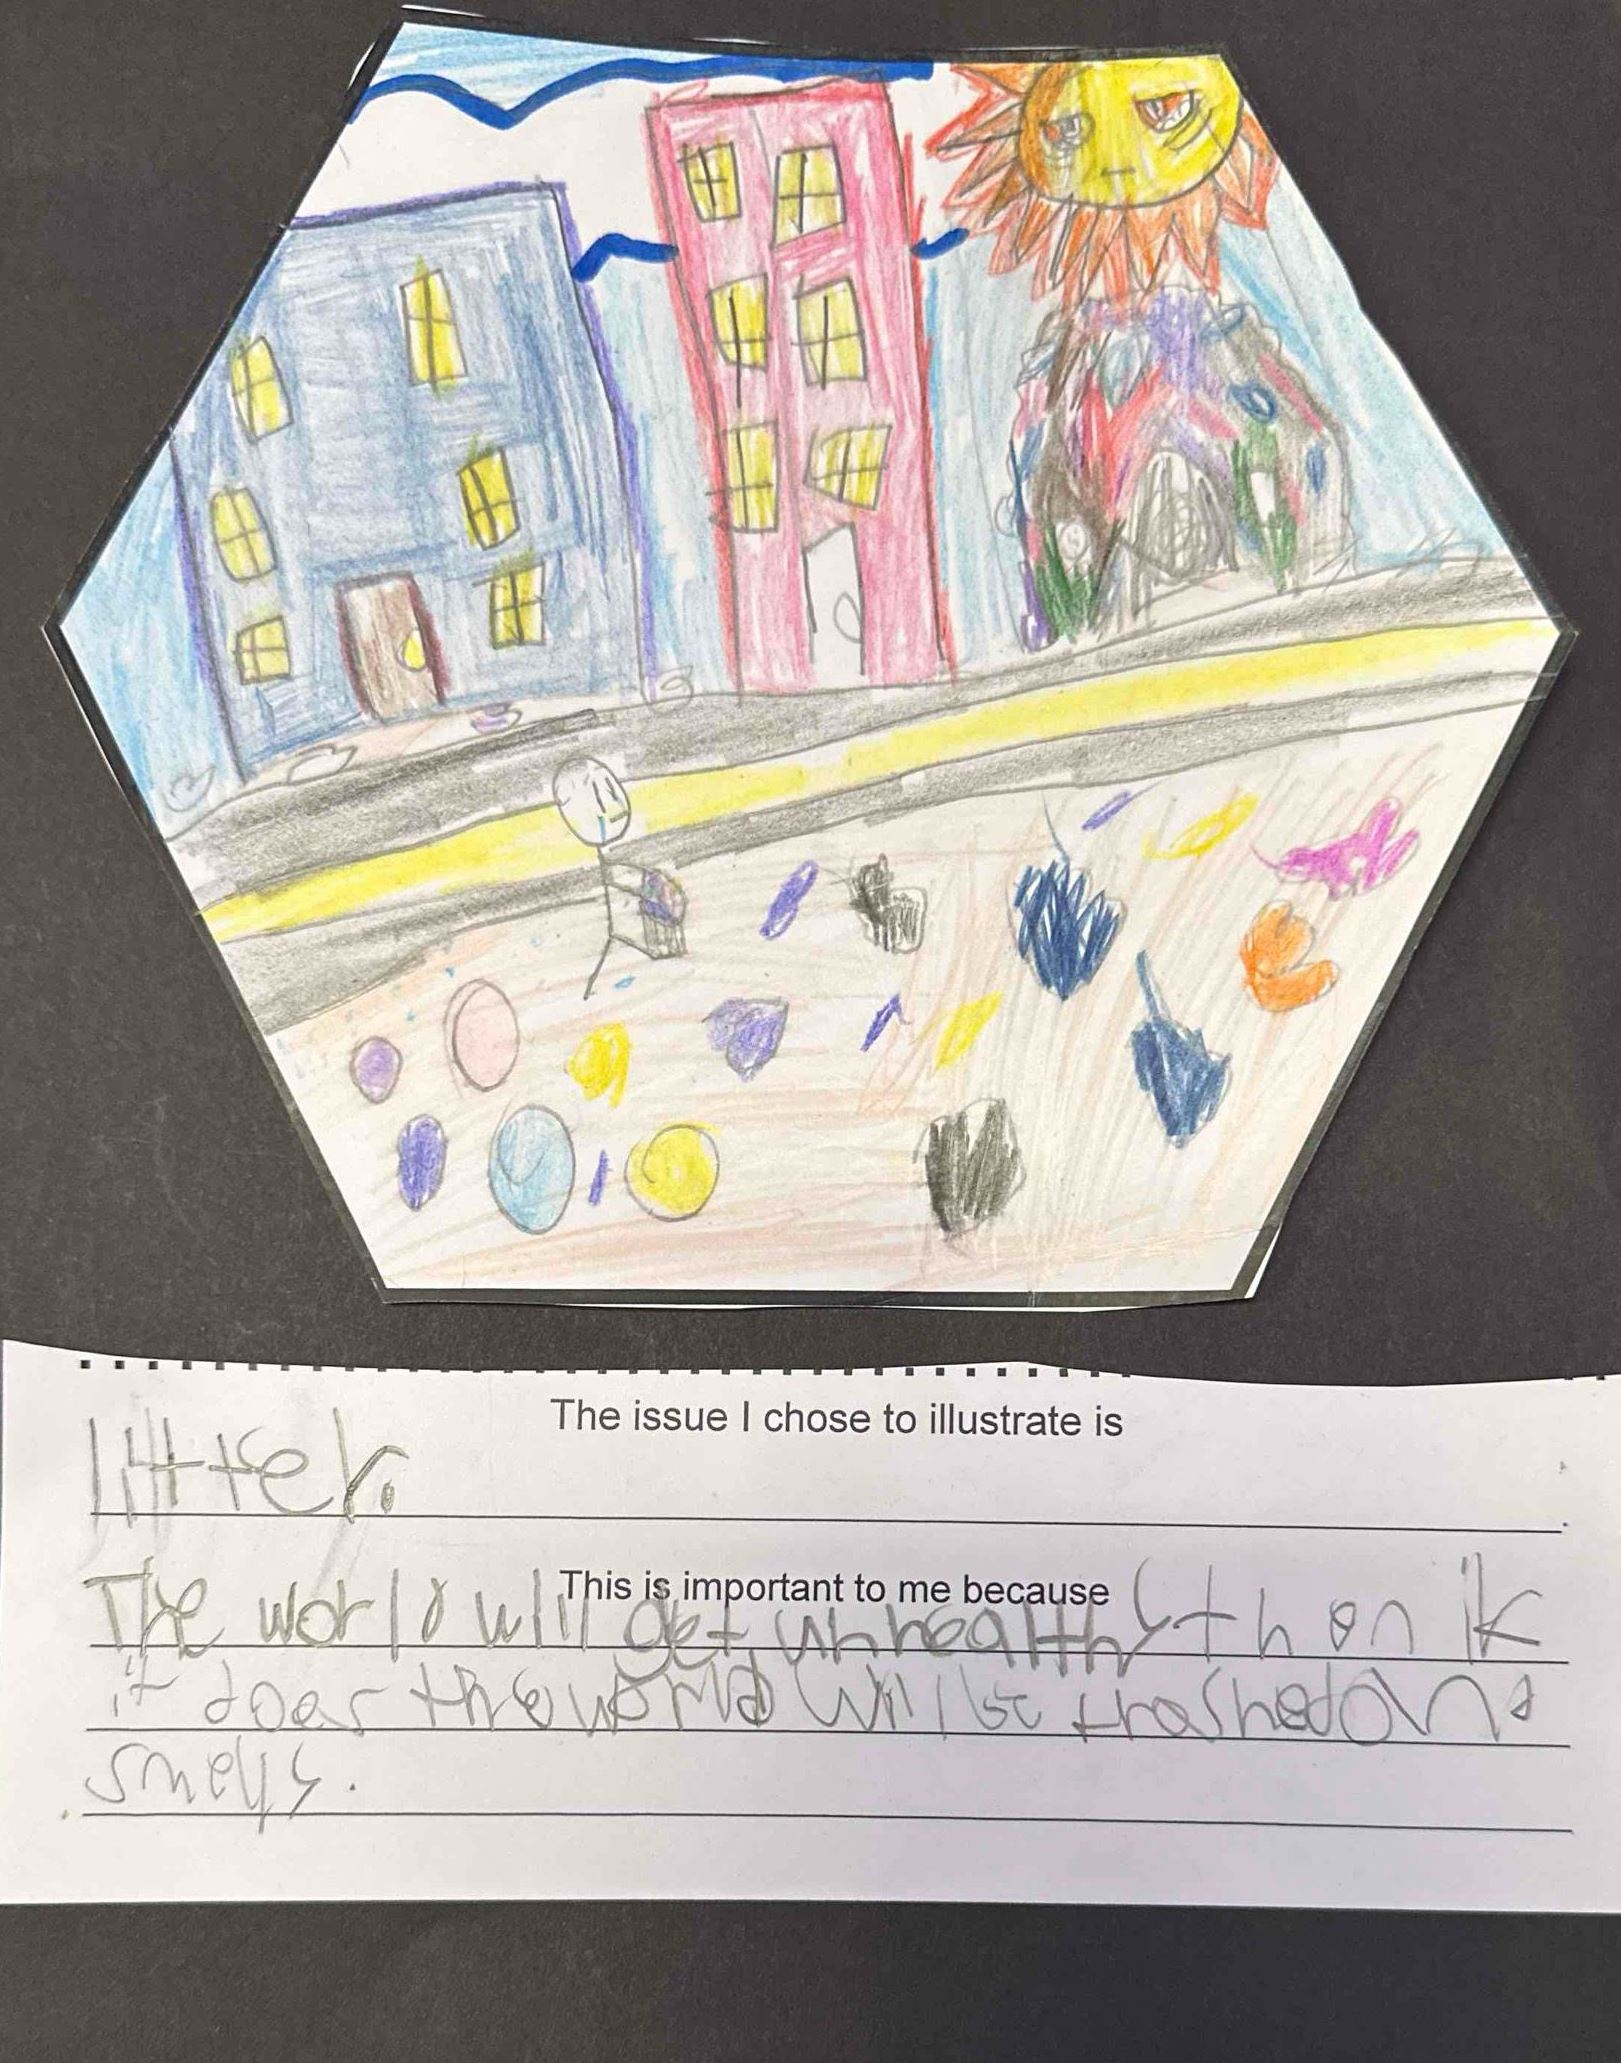 The issue I chose to illustrate is
litter.
This is important to me because
The world will get unhealthy then ik
it does the world will be trashed and
smelly.